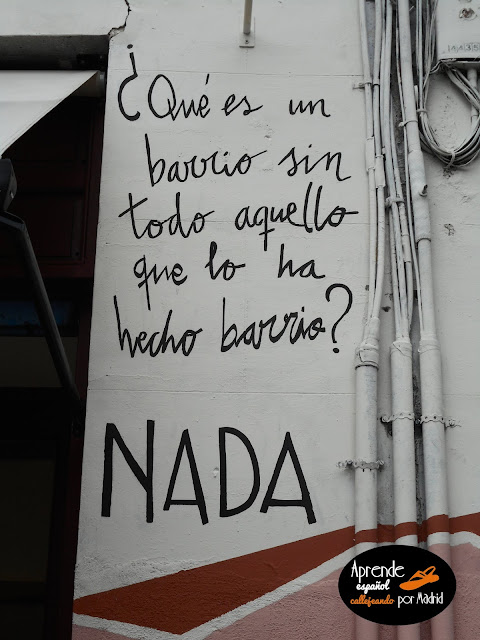 ¿Qué es un
barrio sin
todo aquello
que lo ha
hecho barrio?
NADA
Aprende
español
callejeando por Madrid